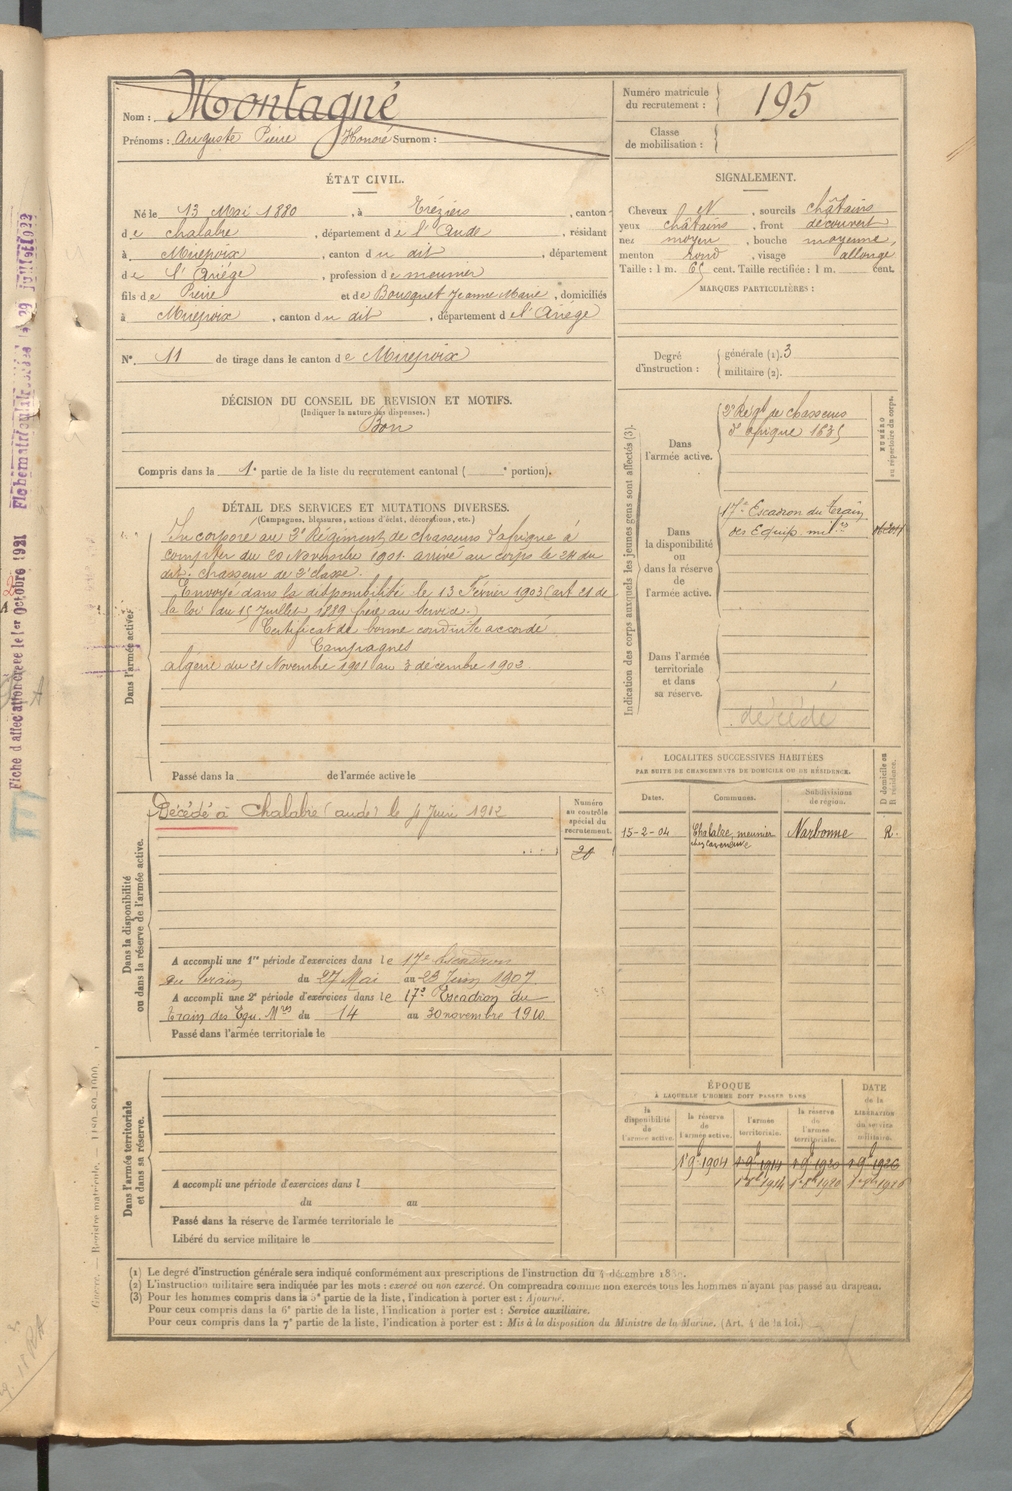 Nom : Montagné
Prénoms : Auguste Pierre Honoré Surnom :
Numéro matricule du recrutement : 195
Classe de mobilisation :
ÉTAT CIVIL.
Né le 13 Mai 1880, à Tréziers, canton
de chalabre, département de l'Aude, résidant
à Mirepoix, canton du dit, département
de l'Ariége, profession de meunier
fils de Pierre et de Bousquet Jeanne Marie, domiciliés
à Mirepoix, canton du dit, département de l'Ariége
N° 11 de tirage dans le canton de Mirepoix
SIGNALEMENT.
Cheveux et, sourcils châtains
yeux châtains, front découvert
nez moyen, bouche moyenne,
menton rond, visage allongé
Taille : 1 m. 65 cent. Taille rectifiée : 1 m. cent.
MARQUES PARTICULIÈRES :
Degré d'instruction :
générale (1). 3
militaire (2).
DÉCISION DU CONSEIL DE REVISION ET MOTIFS.
(Indiquer la nature des dispenses.)
Bon
Compris dans la 1e partie de la liste du recrutement cantonal ( e portion).
DÉTAIL DES SERVICES ET MUTATIONS DIVERSES.
(Campagnes, blessures, actions d'éclat, décorations, etc.)
Dans l'armée active.
Incorporé au 2e Régiment de chasseurs d'afrique à
compter du 20 Novembre 1901 arrivé au corps le 24 du
dit; chasseur de 2e classe.
Envoyé dans la disponibilité le 13 Février 1903 (art 21 de
la loi du 15 Juillet 1889 frère au service.)
Certificat de bonne conduite accordé
Campagnes
algérie du 21 Novembre 1901 au 3 décembre 1902
Passé dans la de l'armée active le
Indication des corps auxquels les jeunes gens sont affectés (3).
NUMÉRO au répertoire du corps.
Dans l'armée active.
2e Régt de chasseurs
d'afrique 1635
Dans la disponibilité ou dans la réserve de l'armée active.
17e Escadron du Train
des Equip. milres
Dans l'armée territoriale et dans sa réserve.
décédé
Dans la disponibilité ou dans la réserve de l'armée active.
Décédé à Chalabre (aude) le 4 Juin 1912
Numéro au contrôle spécial du recrutement.
A accompli une 1re période d'exercices dans le 17e Escadron
du Train du 27 Mai au 23 Juin 1907
A accompli une 2e période d'exercices dans le 17e Escadron du
train des Equ. Mres du 14 au 30 novembre 1910.
Passé dans l'armée territoriale le
LOCALITÉS SUCCESSIVES HABITÉES
PAR SUITE DE CHANGEMENTS DE DOMICILE OU DE RÉSIDENCE.
Dates. Communes. Subdivisions de région. D domicile ou R résidence.
15-2-04 Chalabre, meunier Narbonne R.
Dans l'armée territoriale et dans sa réserve.
A accompli une période d'exercices dans l
du au
Passé dans la réserve de l'armée territoriale le
Libéré du service militaire le
ÉPOQUE
À LAQUELLE L'HOMME DOIT PASSER DANS
la disponibilité de l'armée active. la réserve de l'armée active. l'armée territoriale. la réserve de l'armée territoriale. DATE de la LIBÉRATION du service militaire.
1 9bre 1904 1 9bre 1914 1 9bre 1920 1 9bre 1926
(1) Le degré d'instruction générale sera indiqué conformément aux prescriptions de l'instruction du 4 décembre
(2) L'instruction militaire sera indiquée par les mots : exercé ou non exercé. On comprendra comme non exercés tous les hommes n'ayant pas passé au drapeau.
(3) Pour les hommes compris dans la 5e partie de la liste, l'indication à porter est : Ajourné.
Pour ceux compris dans la 6e partie de la liste, l'indication à porter est : Service auxiliaire.
Pour ceux compris dans la 7e partie de la liste, l'indication à porter est : Mis à la disposition du Ministre de la Marine. (Art. 4 de la loi.)
Fiche d'affectation créée le 1er Octobre 1921